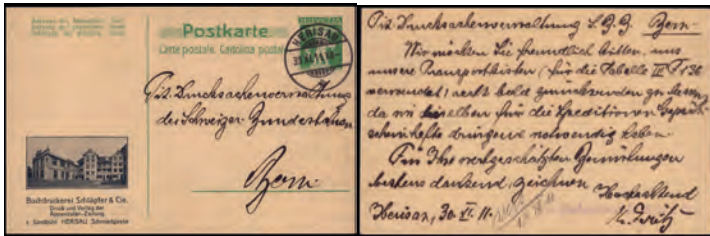 Postkarte
Carte postale. Cartolina postale
HERISAU
Tit. Drucksachenverwaltung
der Schweizer. Bundesbahnen
Bern.
Buchdruckerei Schläpfer & Cie.
Druck und Verlag der
Appenzeller-Zeitung
z. Landbühl HERISAU Schmiedgasse
Tit. Drucksachenverwaltung S.B.B. Bern.
Wir möchten Sie freundlich bitten, uns
unsere Transportkisten (für die Tabelle III F 136
verwendet) recht bald zurücksenden zu lassen,
da wir dieselben für die Speditionen Gepäck-
scheinhefte dringend notwendig haben.
Für Ihre wertgeschätzten Bemühungen
bestens dankend, zeichnen Hochachtend
Herisau, 30. XI. 11.